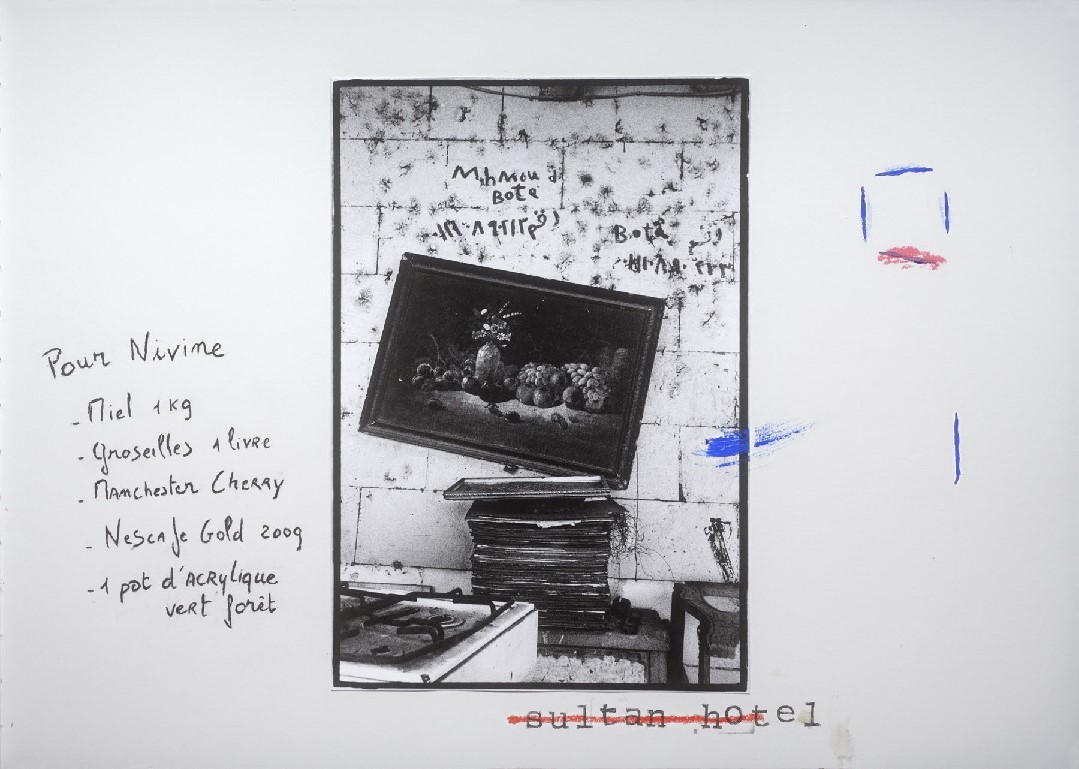 Pour Nivine
- Miel 1 kg
- Groseilles 1 livre
- Manchester Cherry
- Nescafe Gold 200g
- 1 pot d'acrylique
vert forêt
Bote
Bota
sultan hotel